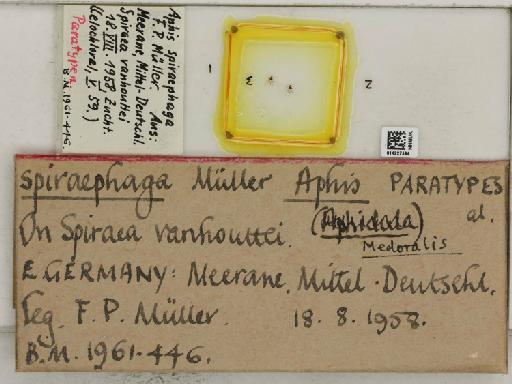 Aphis spiraephaga
F.P. Müller. Aus:
Meerane, Mittel-Deutschl.
Spiraea vanhouttei
18.VIII.1958 Zucht.
Paratypen
B.M. 1961-446.
1
3
2
spiraephaga Müller Aphis PARATYPES
al.
On Spiraea vanhouttei. (Aphidula)
Medoralis
E. GERMANY: Meerane, Mittel-Deutschl.
leg. F. P. Müller. 18. 8. 1958.
B.M. 1961-446.